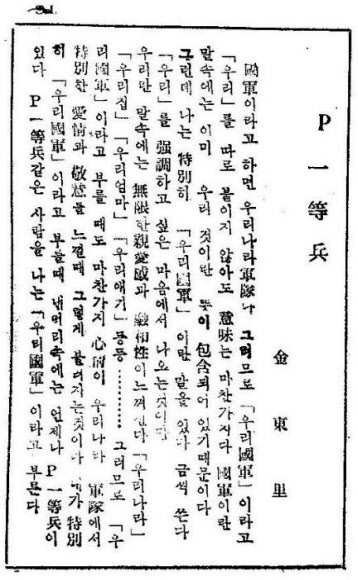 P一等兵
金東里
國軍이라고 하면 우리나라軍隊다 그러므로 「우리國軍」이라고
「우리」를 따로 붙이지 않아도 意味는 마찬가지다 國軍이란
말속에는 이미 우리 것이란 뜻이 包含되어 있기때문이다
그런데 나는 特別히 「우리國軍」이란 말을 있다금씩 쓴다
「우리」를 强調하고 싶은 마음에서 나오는것이다
우리란 말속에는 無限한親愛感과 融和性이느껴진다 「우리나라」
「우리집」「우리엄마」「우리애기」등등………… 그러므로 「우
리國軍」이라고 부를 때도 마찬가지 心情이 우리나라 軍隊에서
特別한 愛情과 敬意를 느낄때 그렇게 불려지는것이다 내가 特別
히 「우리國軍」이라고 부를때 내머리속에는 언제나 P一等兵이
있다 P一等兵같은 사람을 나는 「우리國軍」이라고 부른다